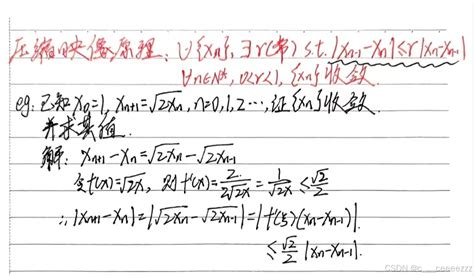 压缩映像原理：∪{xn}，∃r(常) s.t. |xn+1-xn|≤r|xn-xn-1|
∀n∈N*，0<r<1，{xn}收敛.
eg: 已知x0=1, xn+1=√2xn, n=0,1,2…, 证{xn}收敛
并求其值.
解: xn+1-xn=√2xn-√2xn-1
令f(x)=√2x, 则f'(x)=2/2√2x=1/√2x≤√2/2
∴|xn+1-xn|=|√2xn-√2xn-1|=|f'(ξ)(xn-xn-1)|
≤√2/2|xn-xn-1|.